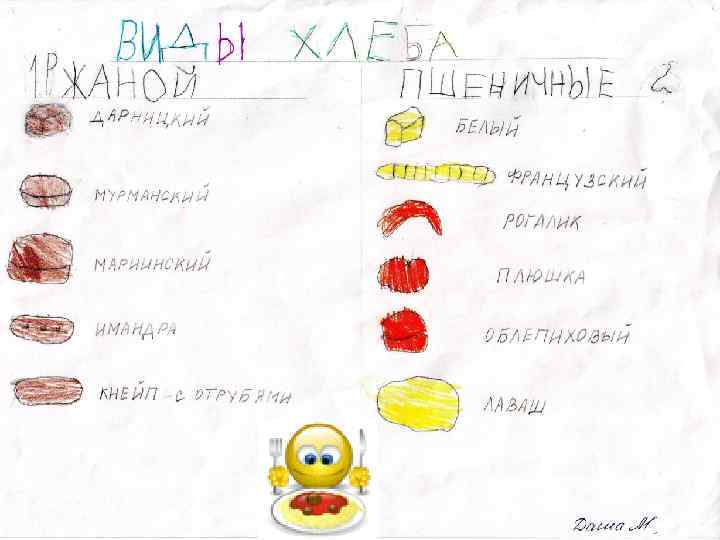 ВИДЫ ХЛЕБА
1 РЖАНОЙ
ДАРНИЦКИЙ
МУРМАНСКИЙ
МАРИИНСКИЙ
ИМАНДРА
КНЕЙП-С ОТРУБЯМИ
ПШЕНИЧНЫЕ 2
БЕЛЫЙ
ФРАНЦУЗСКИЙ
РОГАЛИК
ПЛЮШКА
ОБЛЕПИХОВЫЙ
ЛАВАШ
Даша М.